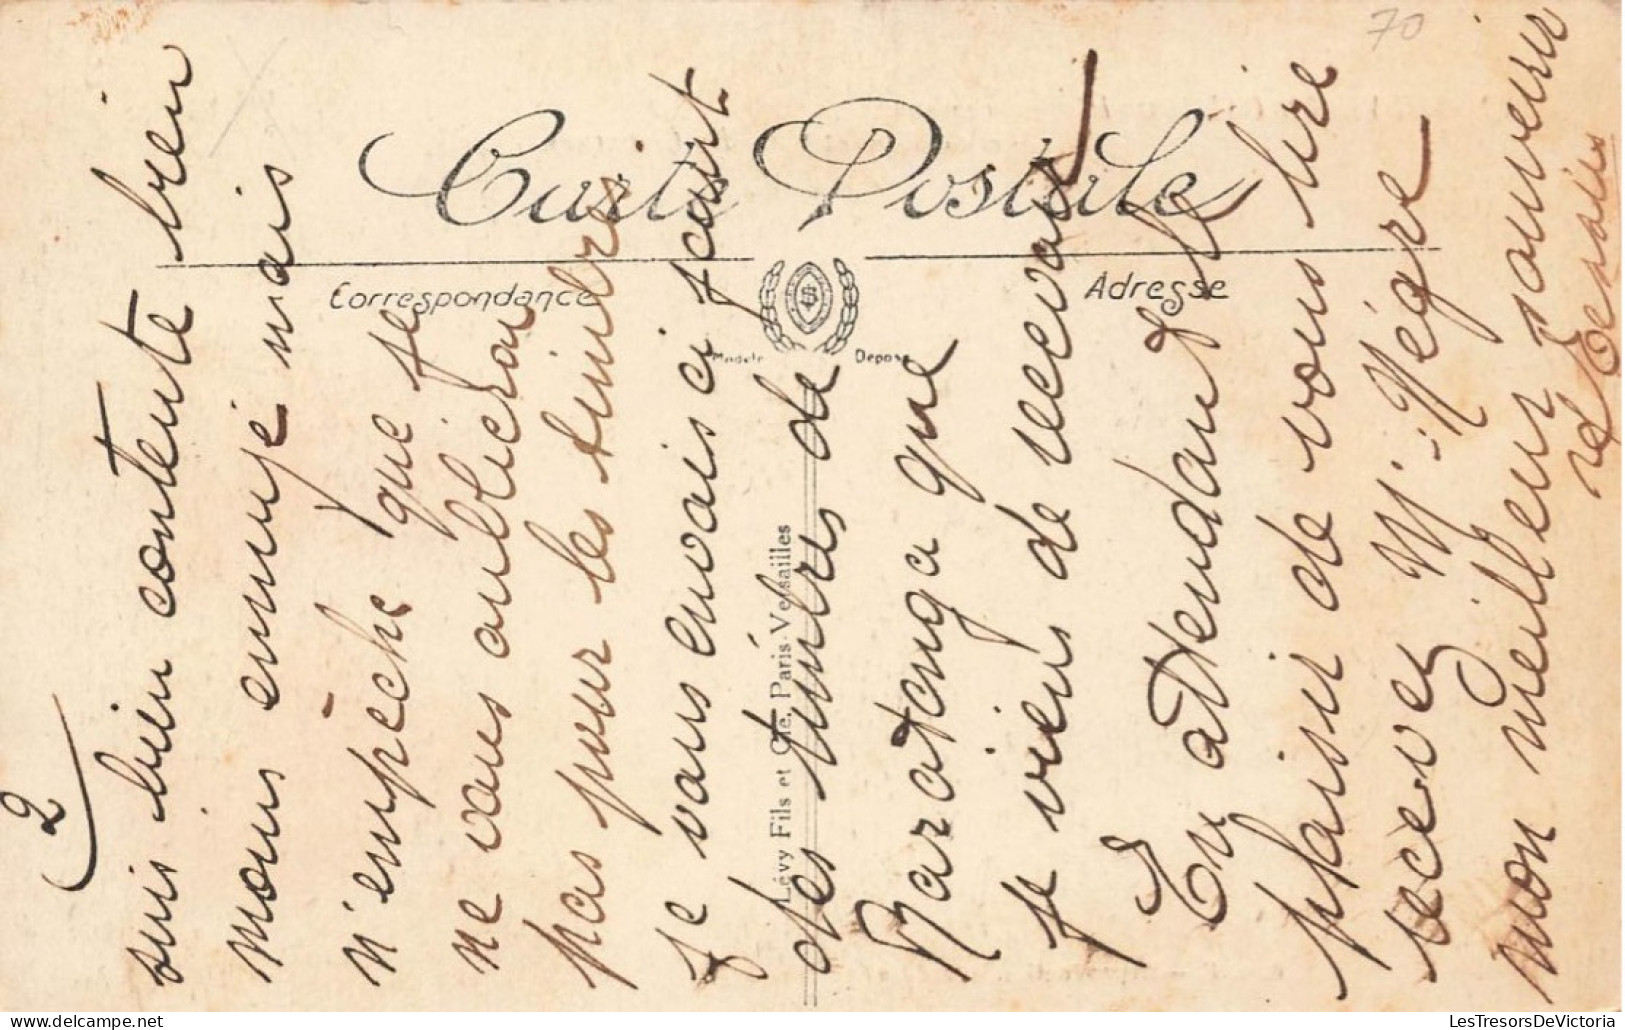 70
Carte Postale
Correspondance
Adresse
Modèle Déposé
Lévy Fils et Cie. Paris-Versailles
2
suis bien contente bien
mous ennuye mais
n'empèche que je
ne vous oublierai
pas pour les timbres
je vous envois ci jount
des timbres de
Raratonga que
je viens de recevoir
En attendant le
plaisir de vous lire
recevez M. Négre
mon meilleur souvenir
LesTresorsDeVictoria
www.delcampe.net